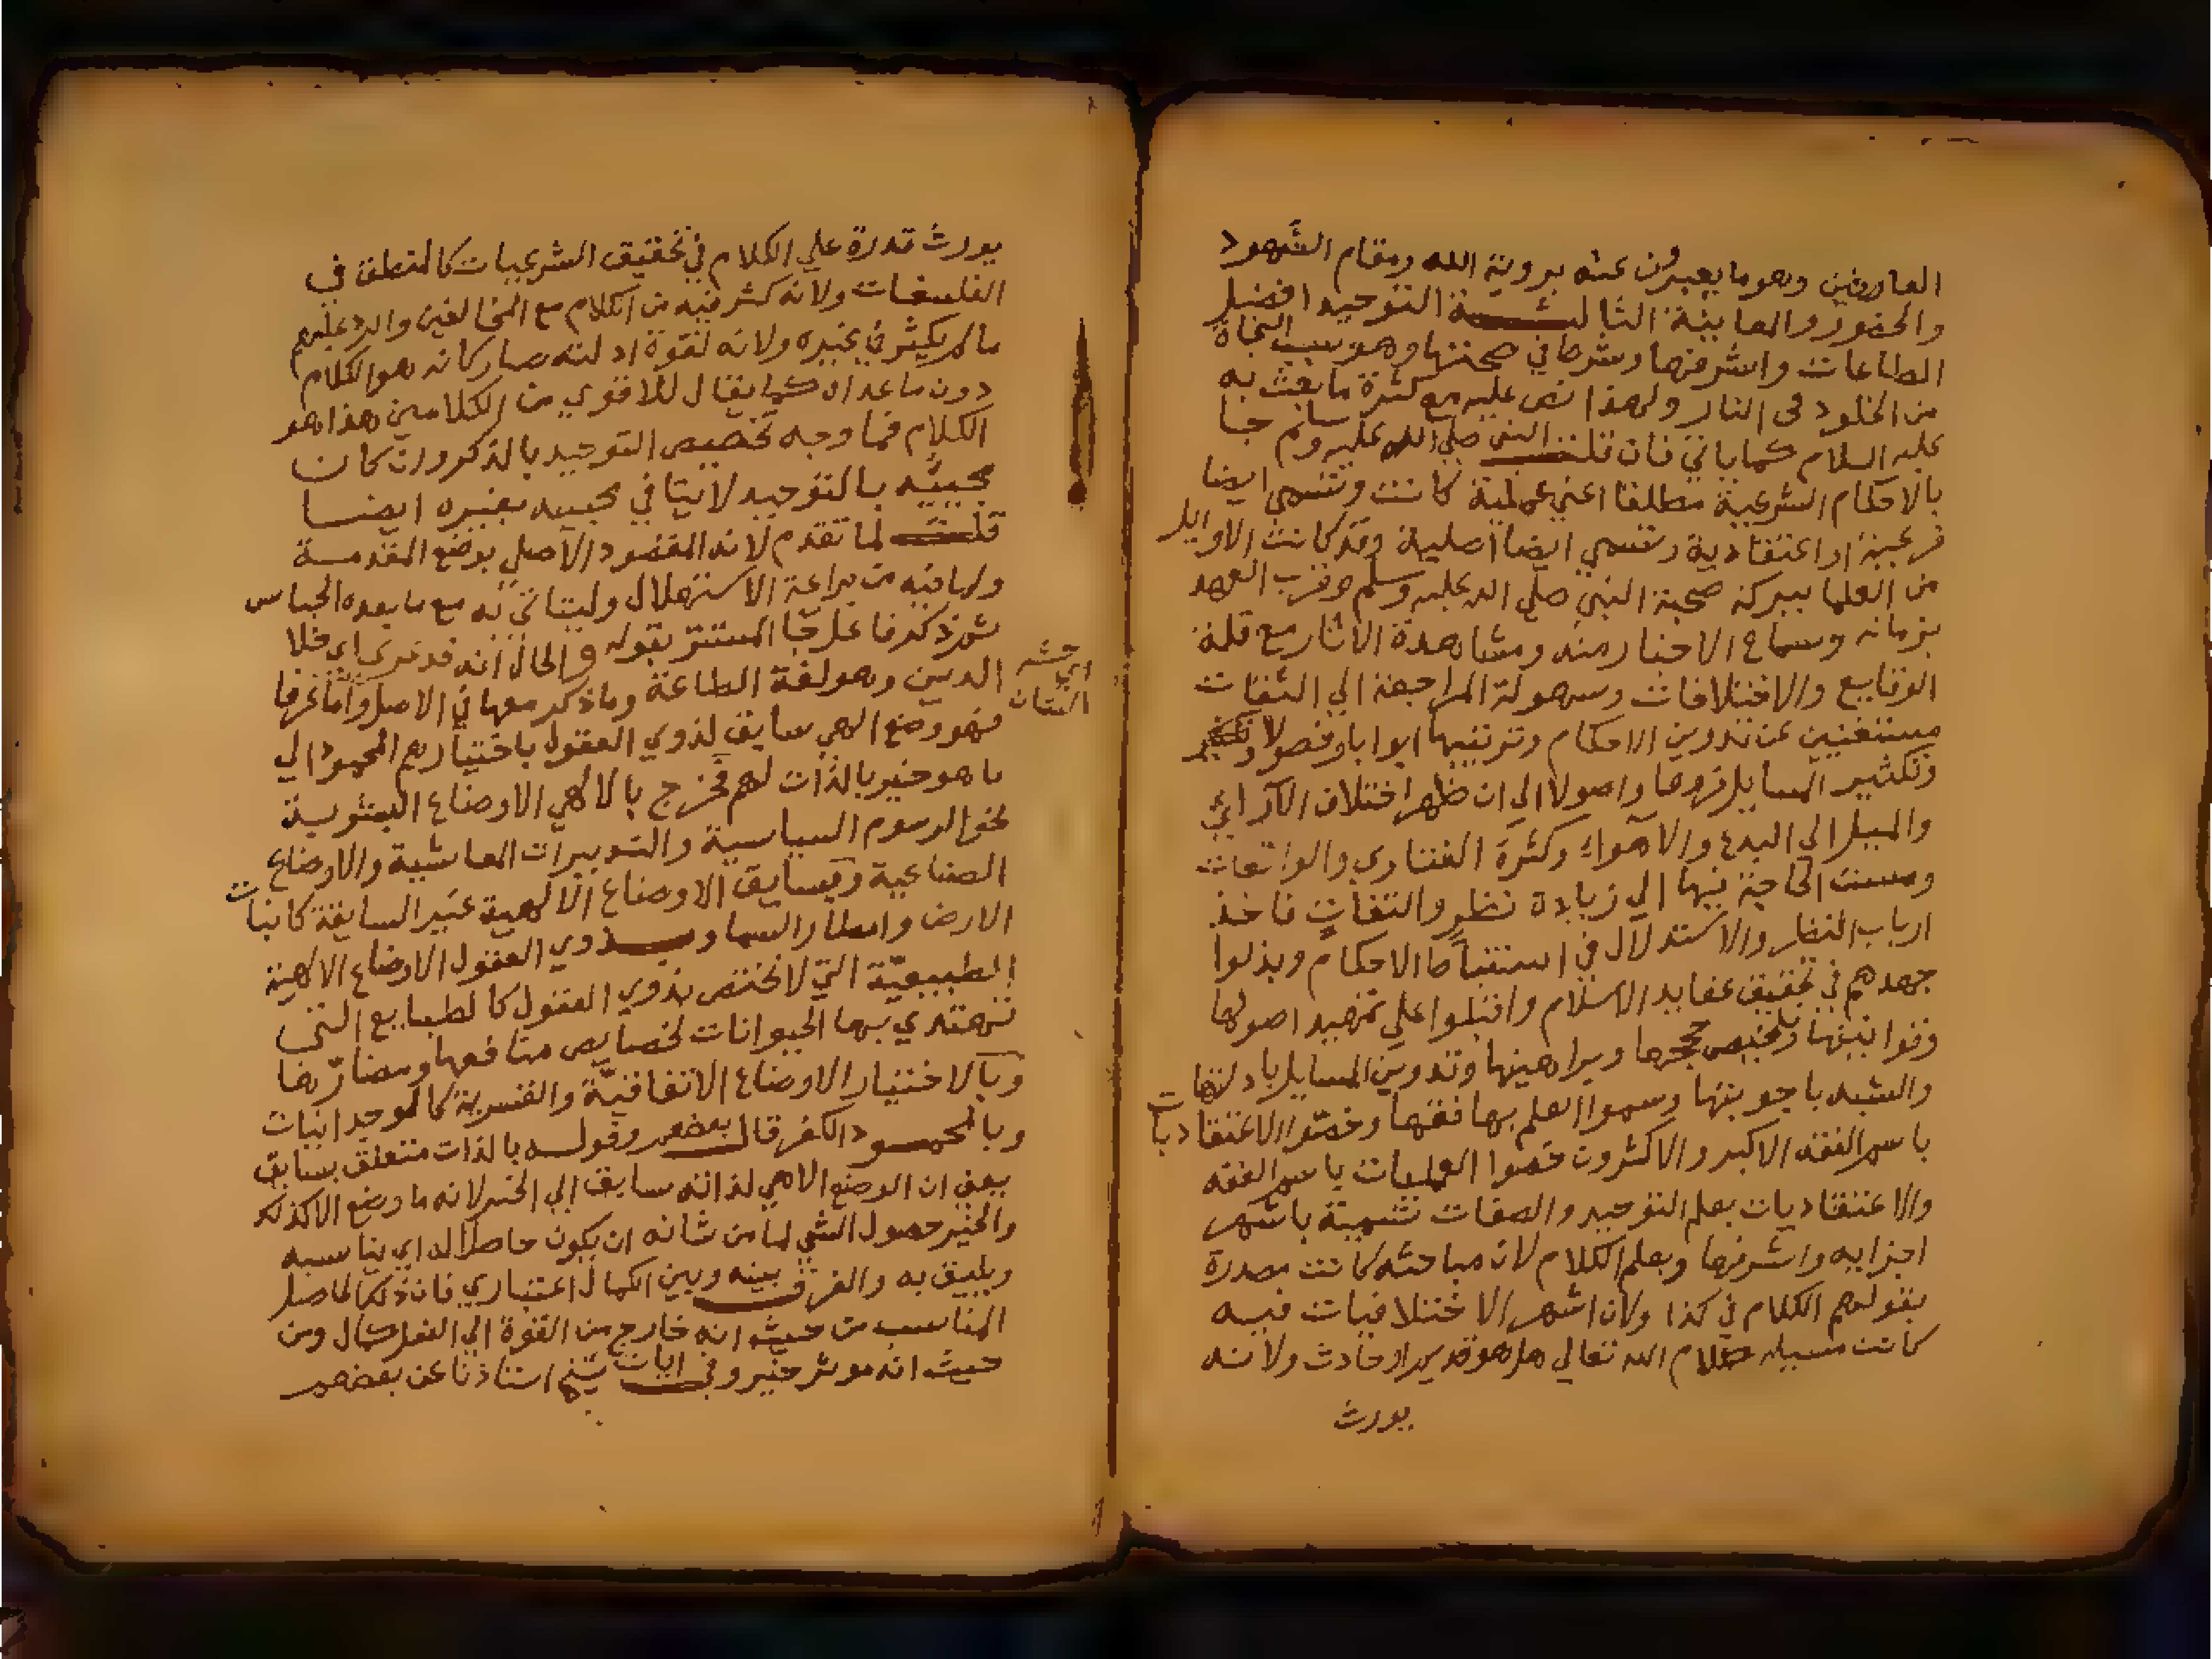 العارفين وهو ما يعبرون عنه بروية الله ومقام الشهود
والحضور والمعاينة الثالثة التوحيد افضل
الطاعات واشرفها وشرط في صحتها وهو سبب النجاة
من الخلود في النار ولهذا نص عليه مع كثرة ما بعث به
عليه السلام كما ياتي فان قلت النبي صلي الله عليه وسلم جا
بالاحكام الشرعية مطلقا اعني عملية كانت وتسمي ايضا
فرعية او اعتقادية وتسمي ايضا اصلية وقد كانت الاوايل
من العلما ببركة صحبة النبي صلي الله عليه وسلم وقرب العهد
بزمانه وسماع الاخبار منه ومشاهدة الاثار مع قلة
الوقايع والاختلافات وسهولة المراجعة الي الثقات
مستغنين عن تدوين الاحكام وترتيبها ابوابا وفصولا
وتكثير المسايل فروعا واصولا الي ان ظهر اختلاف الآرائ
والميل الي البدع والاهواء وكثرة الفتاوي والواقعات
ومست الحاجة فيها الي زيادة نظر والتفات فاخذ
ارباب النظر والاستدلال في استنباط الاحكام وبذلوا
جهدهم في تحقيق عقايد الاسلام واقبلوا علي تمهيد اصولها
وقوانينها وتلخيص حججها وبراهينها وتدوين المسايل بادلتها
والشبه باجوبتها وسموا العلم بها فقها وخصوا الاعتقاديات
باسم الفقه الاكبر والاكثرون خصوا العمليات باسم الفقه
والاعتقاديات بعلم التوحيد والصفات تسمية باشهر
اجزايه واشرفها وبعلم الكلام لان مباحثه كانت مصدرة
بقولهم الكلام في كذا ولان اشهر الاختلافات فيه
كانت مسيله كلام الله تعالي هل هو قديم او حادث ولانه
يورث
يورث قدرة علي الكلام في تحقيق الشرعيات كالمنطق في
الفلسفات ولانه كثر فيه من الكلام مع المخالفين والرد عليهم
ما لم يكثر في غيره ولانه لقوة ادلته صار كانه هو الكلام
دون ما عداه كما يقال للاقوي من الكلامين هذا هو
الكلام فما وجه تخصيص التوحيد بالذكر وان كان
مجييه بالتوحيد لا ينافي مجييه بغيره ايضا
قلت لما تقدم لانه المقصود الاصلي بوضع المقدمة
ولما فيه من براعة الاستهلال وليتاتي له مع ما بعده الجناس
ثم ذكر فاعل جا المستتر بقوله و الحال انه قد عري اي خلا
الدين وهو لغة الطاعة وما ذكر معها في الاصل واما عرفا
فهو وضع الهي سايق لذوي العقول باختيارهم المحمود الي
ما هو خير بالذات لهم فخرج بالالهي الاوضاع البشرية
نحو الرسوم السياسية والتدبيرات المعاشية والاوضاع
الصناعية وبسايق الاوضاع الالهية غير السايقة كانبات
الارض وامطار السما وبـذوي العقول الاوضاع الالهية
الطبيعية التي لا تختص بذوي العقول كالطبايع التي
تهتدي بها الحيوانات لخصايص منافعها ومضارها
وبالاختيار الاوضاع الاتفاقية والقسرية كالوجدانيات
وبالمحمود الكفر قال بعضهم وقوله بالذات متعلق بسايق
يعني ان الوضع الالهي لذاته سايق الي الخير لانه ما وضع الا كذلك
والخير حصول الشي لما من شانه ان يكون حاصلا له اي يناسبه
ويليق به والفرق بينه وبين الكمال اعتباري فان ذلك الحاصل
المناسب من حيث انه خارج من القوة الي الفعل كمال ومن
حيث انه موثر خير وفي شيخ استاذنا عن بعضهم